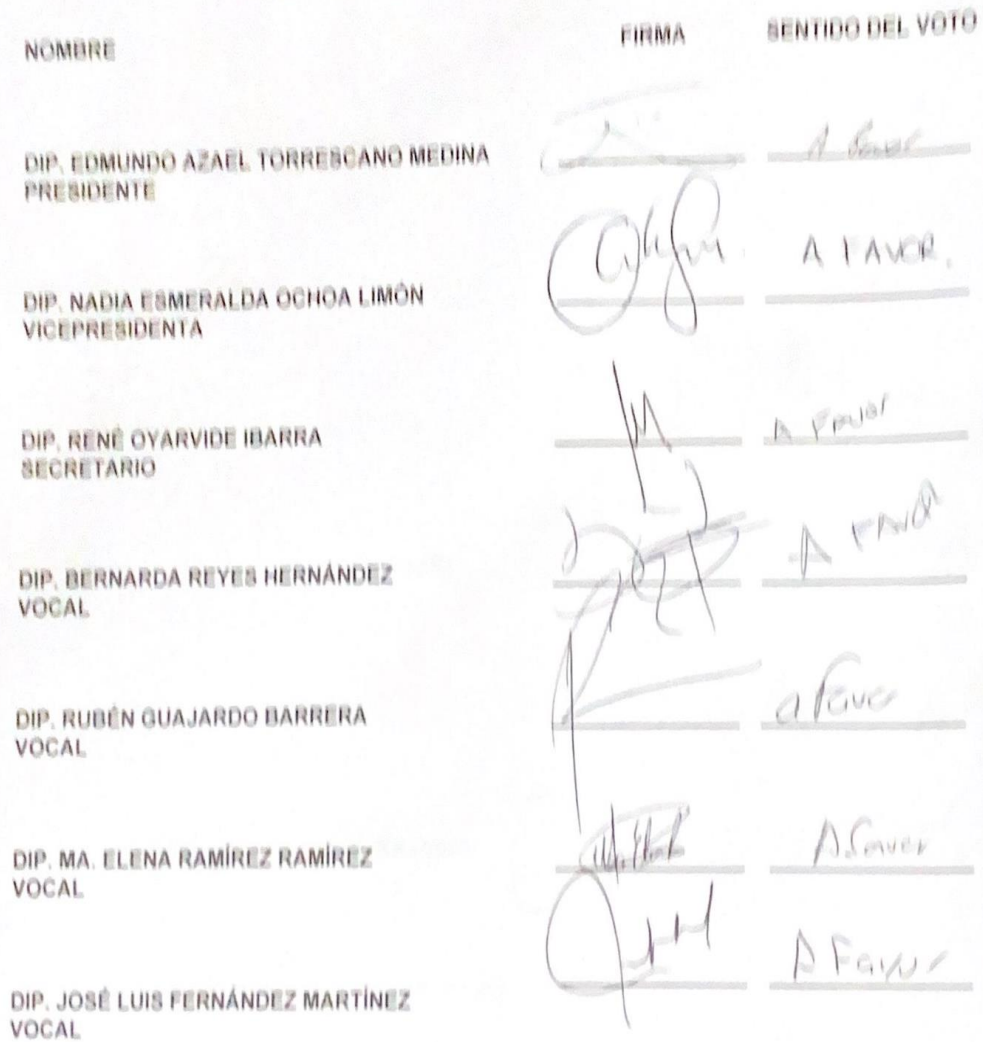 NOMBRE FIRMA SENTIDO DEL VOTO
DIP. EDMUNDO AZAEL TORRESCANO MEDINA A favor
PRESIDENTE
A FAVOR.
DIP. NADIA ESMERALDA OCHOA LIMÓN
VICEPRESIDENTA
DIP. RENÉ OYARVIDE IBARRA A Favor
SECRETARIO
A FAVOR
DIP. BERNARDA REYES HERNÁNDEZ
VOCAL
DIP. RUBÉN GUAJARDO BARRERA a favor
VOCAL
DIP. MA. ELENA RAMÍREZ RAMÍREZ A favor
VOCAL
A Favor
DIP. JOSÉ LUIS FERNÁNDEZ MARTÍNEZ
VOCAL